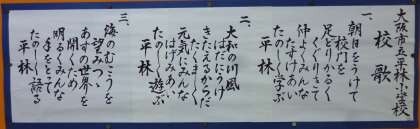 大阪市立平林小学校
校歌
一、
朝日をうけて
校門を
足どりかるく
くぐりきて
仲よくみんな
たすけあい
たのしく学ぶ
平林
二、
大和の川風
はだにうけ
きたえるからだ
たくましく
元気にみんな
はげみあい
たのしく遊ぶ
平林
三、
海のむこうを
望みつつ
あすの世界を
開くため
明るくみんな
手をとって
たのしく語る
平林